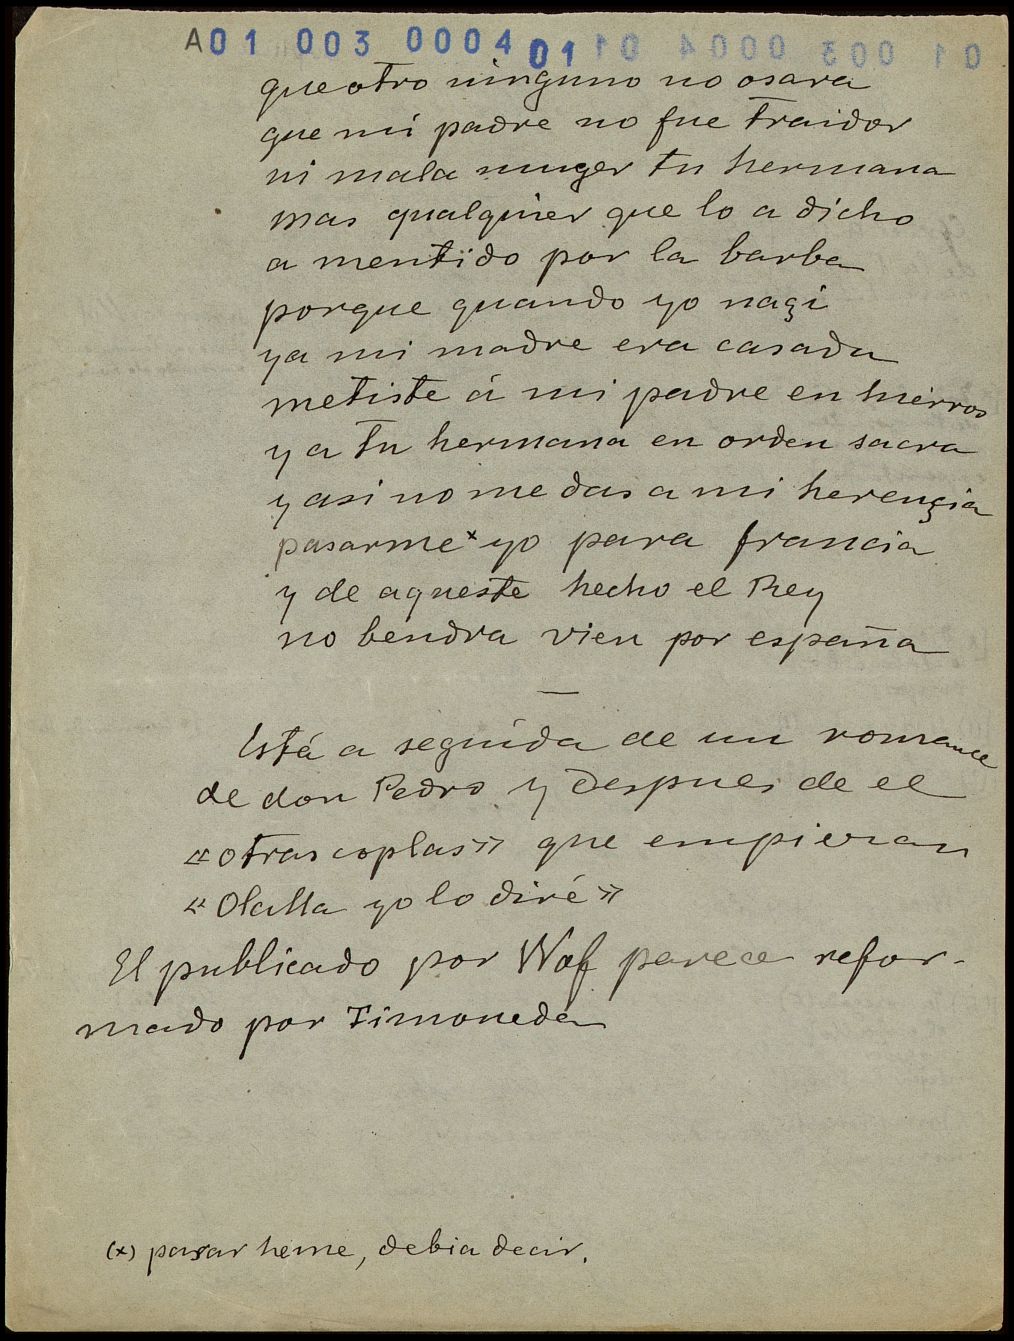 A01 003 0004 01
que otro ninguno no osara
que mi padre no fue traidor
ni mala muger tu hermana
mas qualquier que lo a dicho
a mentido por la barba
porque quando yo naçi
ya mi madre era casada
metiste á mi padre en hierros
y a tu hermana en orden sacra
y asi no me das a mi herençia
pasarme x yo para francia
y de aqueste hecho el Rey
no bendra vien por españa
—
Está a seguida de un romance
de don Pedro y despues de el
«otras coplas» que empiezan
«Olalla yo lo diré»
El publicado por Wolf parece refor-
mado por Timoneda
(x) pasar heme, debia decir.